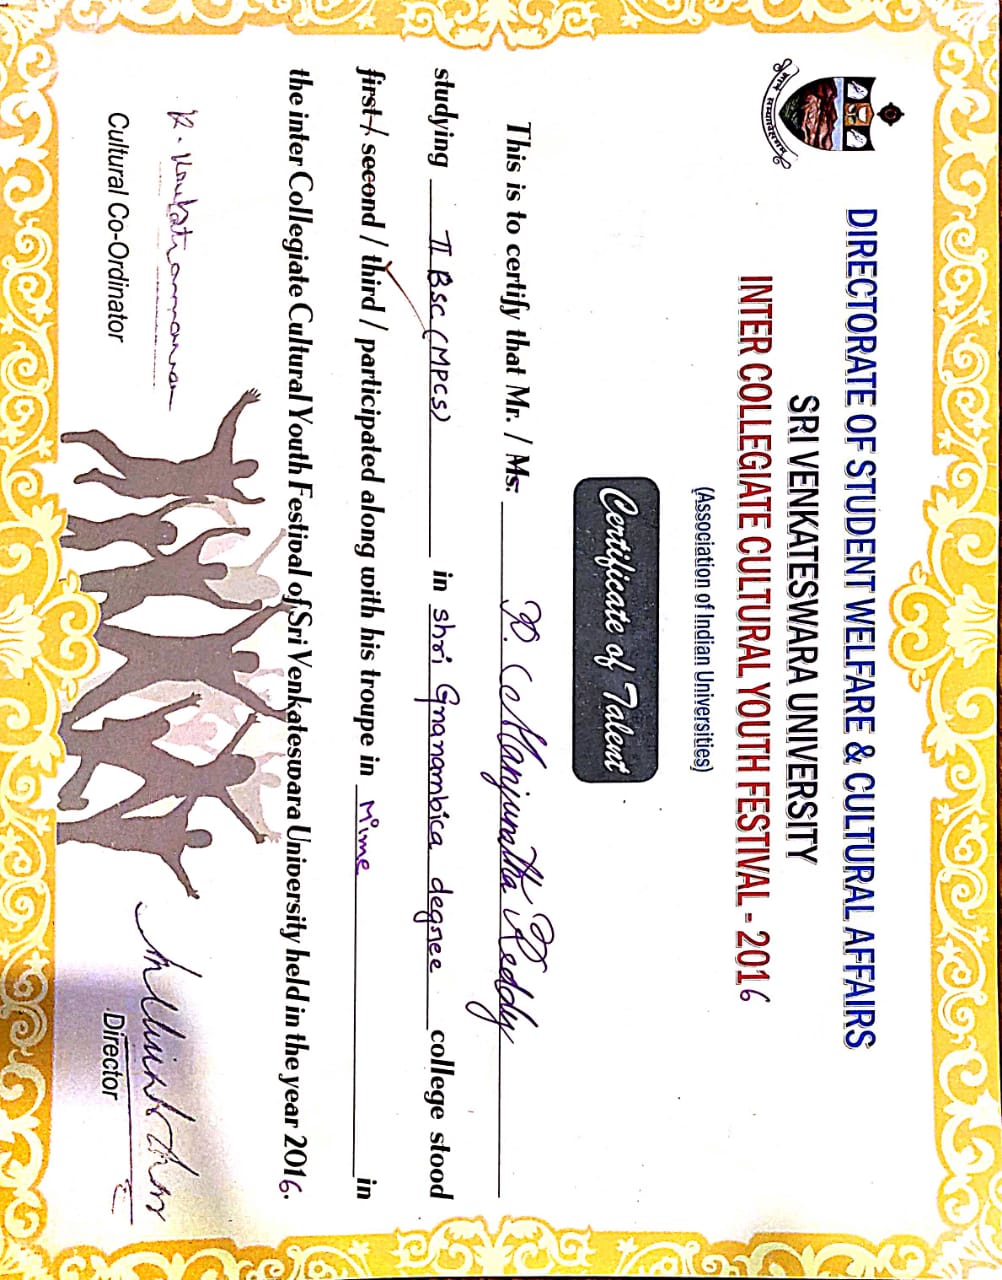 DIRECTORATE OF STUDENT WELFARE & CULTURAL AFFAIRS
SRI VENKATESWARA UNIVERSITY
INTER COLLEGIATE CULTURAL YOUTH FESTIVAL - 2016
(Association of Indian Universities)
Certificate of Talent
This is to certify that Mr. / Ms. P. Manjunatha Reddy
studying II BSC (MPCS) in shri Gnanambica degree college stood
first / second / third / participated along with his troupe in Mime in
the inter Collegiate Cultural Youth Festival of Sri Venkateswara University held in the year 2016.
Cultural Co-Ordinator
Director